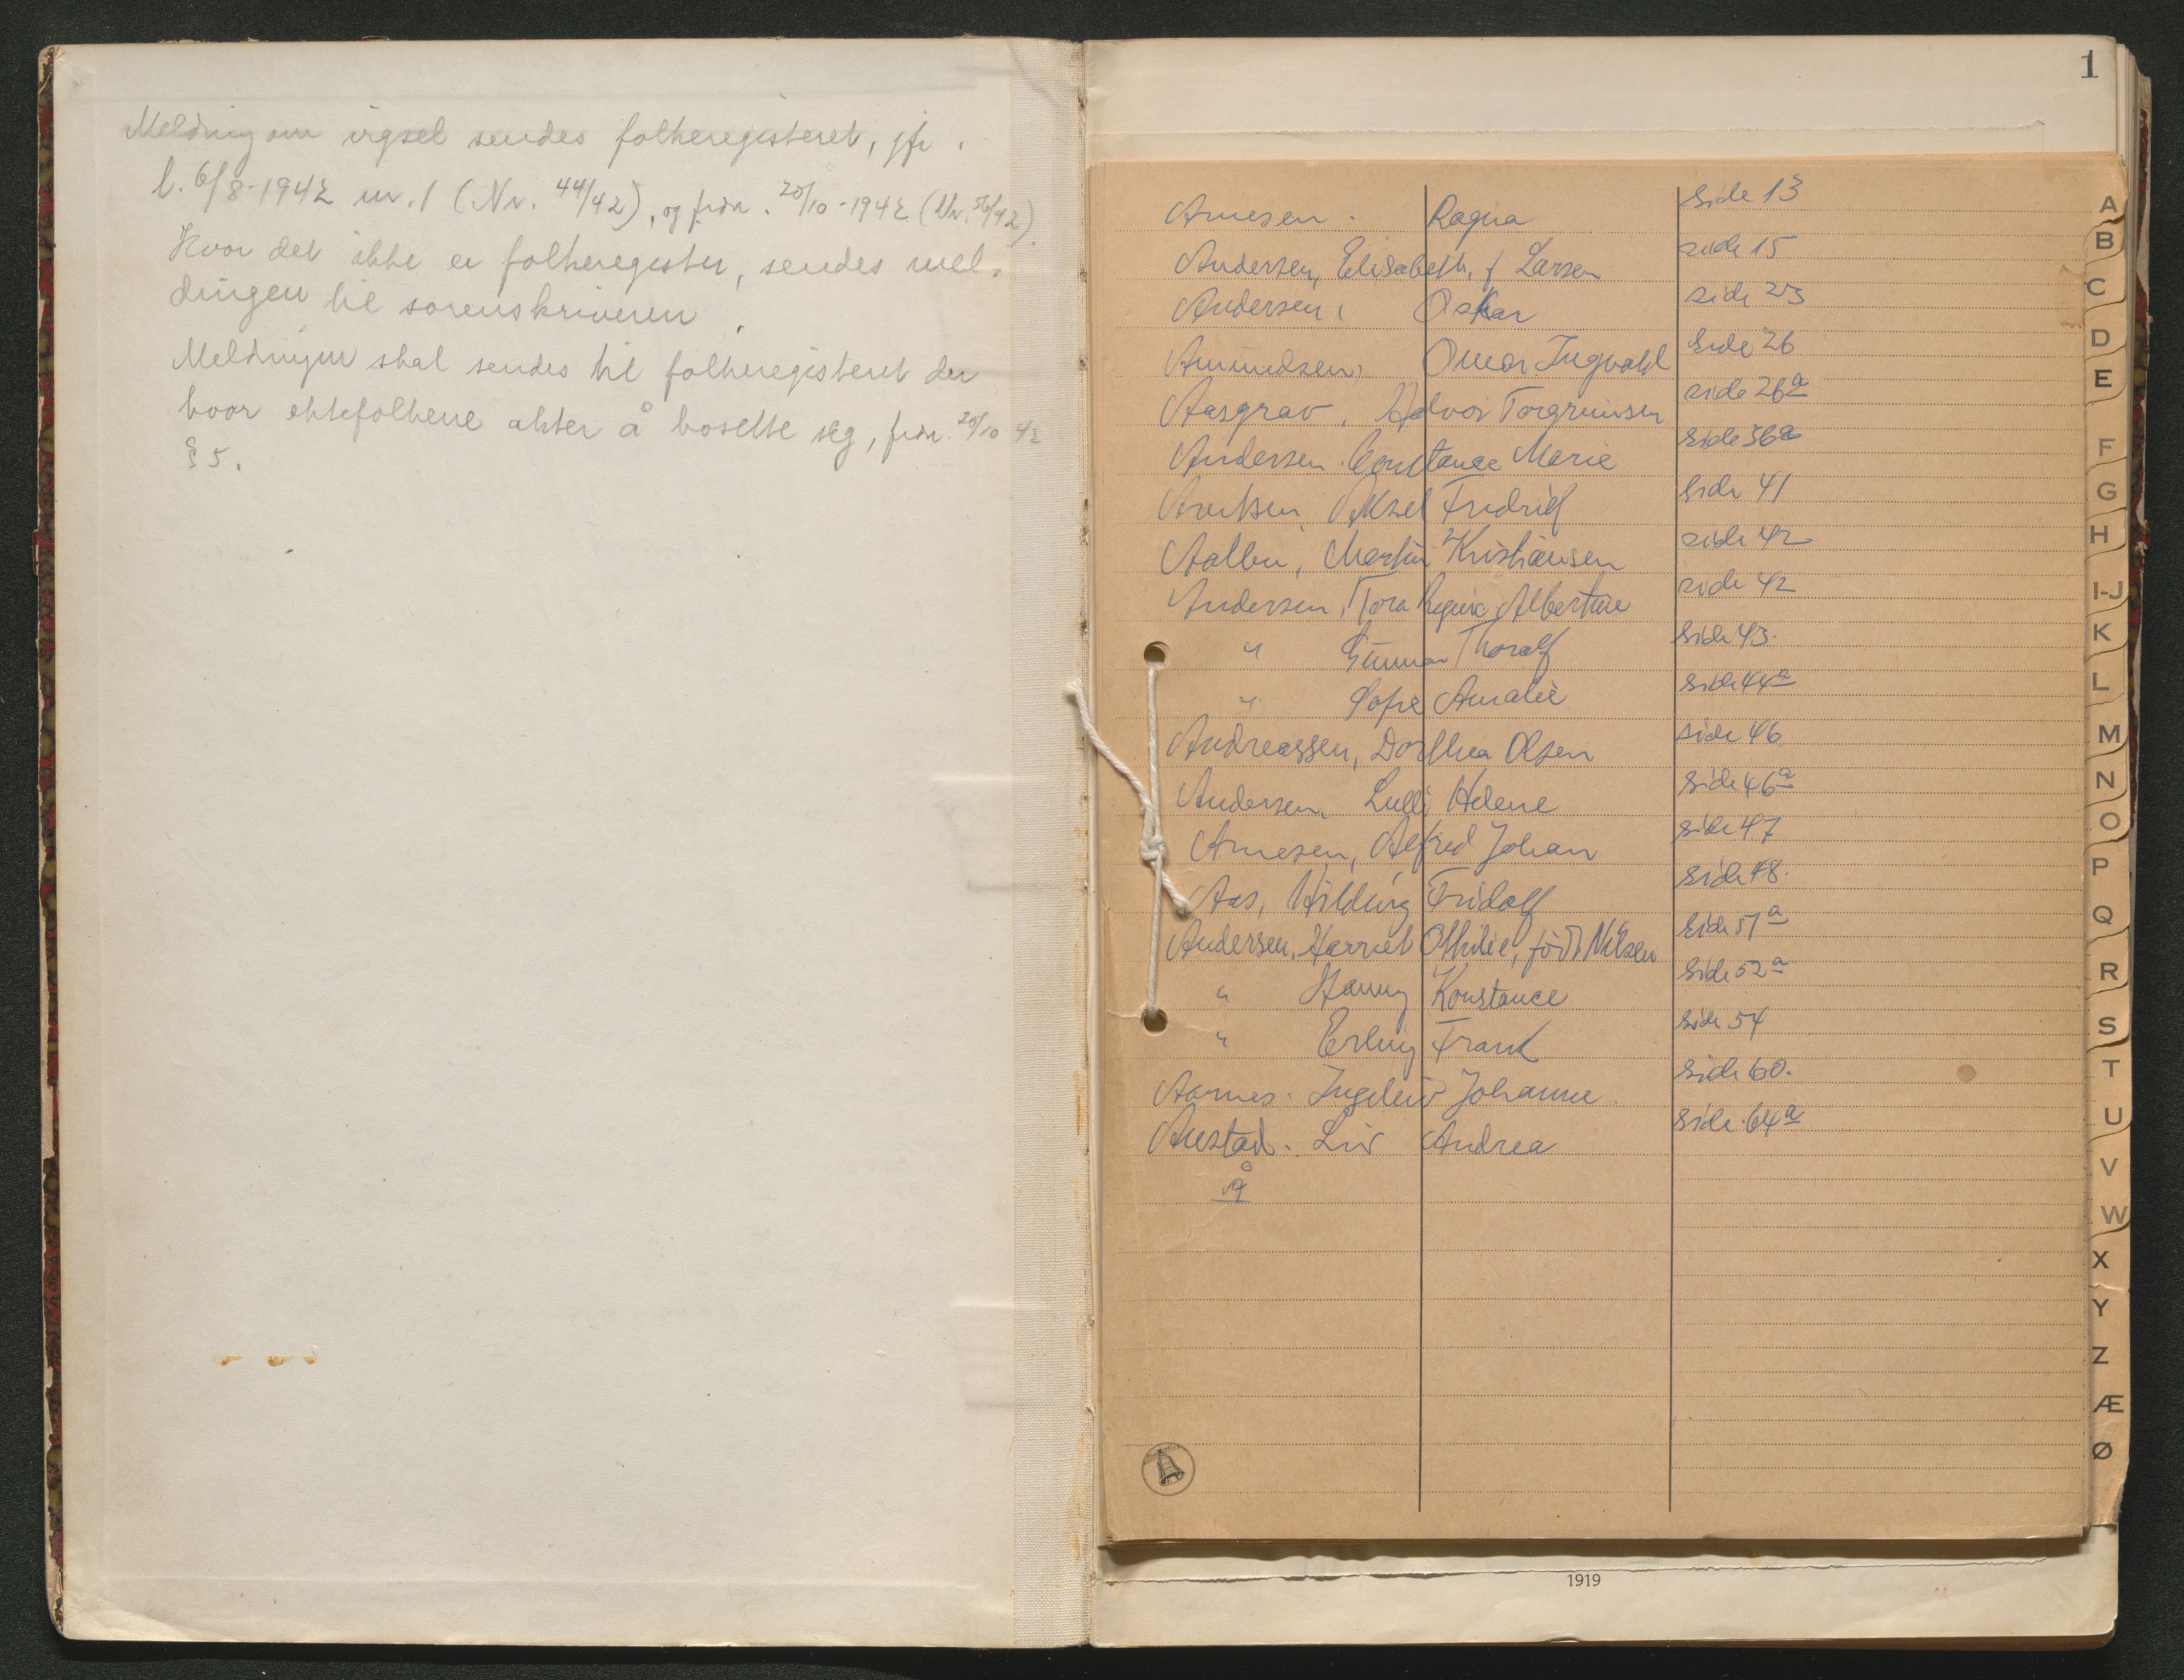 Melding om vigsel sendes folkeregisteret, jfr.
l. 6/8-1942 nr. 1 (Nr. 44/42), og frdn. 20/10-1942 (Nr. 56/42).
Hvor det ikke er folkeregister, sendes mel-
dingen til sorenskriveren.
Meldingen skal sendes til folkeregisteret der
hvor ektefolkene akter å bosette seg, frdn. 20/10 42
§ 5.
1
Arnesen. Ragna side 13
Andersen, Elisabeth, f Larsen side 15
Andersen, Oskar side 23
Amundsen, Omar Ingvald side 26
Aasgrav, Halvor Torgrimsen side 26a
Andersen. Constance Marie side 36a
Arntsen, Aksel Fredrik side 41
Aalbu, Martin Kristiansen side 42
Andersen, Tora Regine Albertine side 42
" Gunnar Thoralf side 43.
" Sofie Amalie side 44a
Andreassen, Dorthea Olsen side 46
Andersen, Lulli Helene side 46a
Arnesen, Alfred Johan side 47
Aas, Hilding Fridolf side 48.
Andersen, Harriet Othilie, född Nilsen side 51a
" Hanny Konstance side 52a
" Erling Frank side 54
Aarnes. Ingeleiv Johanne side 60.
Austad. Liv Andrea side 64a
Å
A
B
C
D
E
F
G
H
I-J
K
L
M
N
O
P
Q
R
S
T
U
V
W
X
Y
Z
Æ
Ø
1919